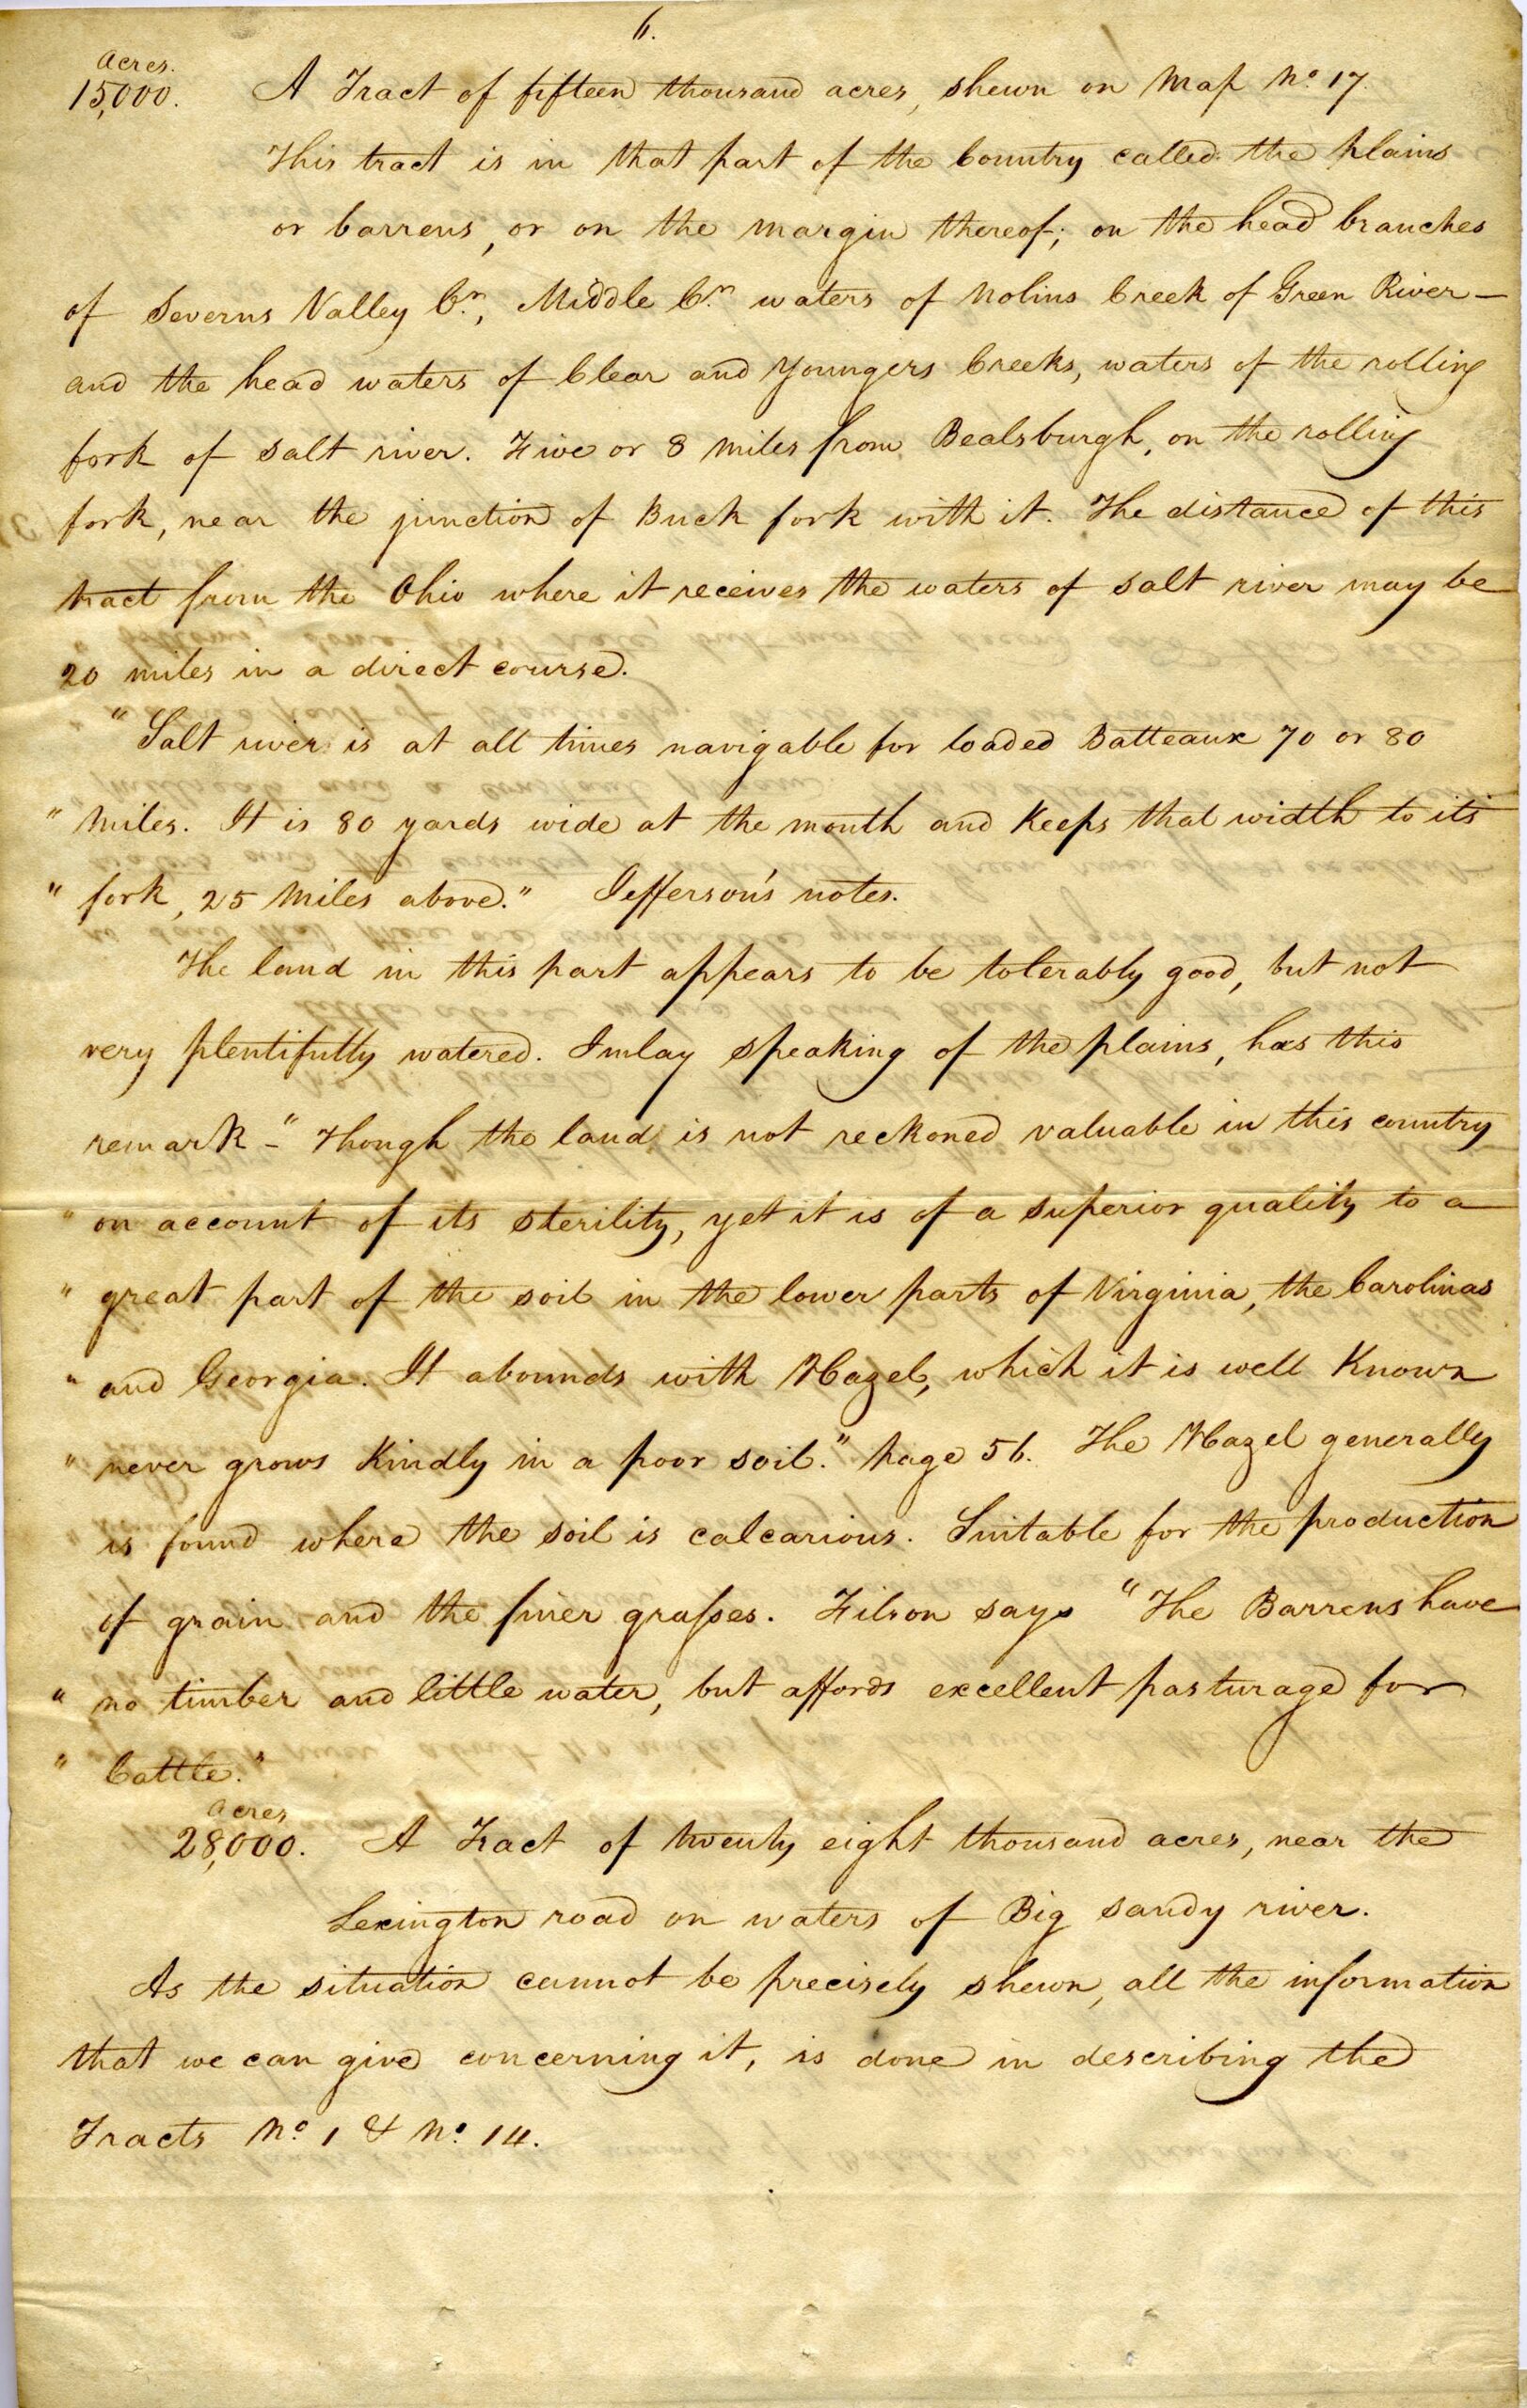 6.
Acres.
15,000. A Tract of fifteen thousand acres, shewn on Map No. 17.
This tract is in that part of the Country called the plains
or barrens, or on the margin thereof; on the head branches
of Severns Valley Cr., Middle Cr. waters of Nolins Creek of Green River—
and the head waters of Clear and Youngers Creeks, waters of the rolling
fork of salt river. Five or 8 miles from Bealsburgh, on the rolling
fork, near the junction of Buck fork with it. The distance of this
tract from the Ohio where it receives the waters of salt river may be
20 miles in a direct course.
"Salt river is at all times navigable for loaded Batteaux 70 or 80
" Miles. It is 80 yards wide at the mouth and Keeps that width to its
" fork, 25 Miles above." Jefferson's notes.
The land in this part appears to be tolerably good, but not
very plentifully watered. Imlay speaking of the plains, has this
remark - "Though the land is not reckoned valuable in this country
" on account of its sterility, yet it is of a superior quality to a
" great part of the soil in the lower parts of Virginia, the Carolinas
" and Georgia. It abounds with Hazel, which it is well Known
" never grows Kindly in a poor soil." page 56. The Hazel generally
is found where the soil is calcarious. Suitable for the production
of grain and the finer grasses. Filson says "The Barrens have
" no timber and little water, but affords excellent pasturage for
" Cattle."
Acres
28,000. A Tract of twenty eight thousand acres, near the
Lexington road on waters of Big sandy river.
As the situation cannot be precisely shewn, all the information
that we can give concerning it, is done in describing the
Tracts No. 1 & No. 14.